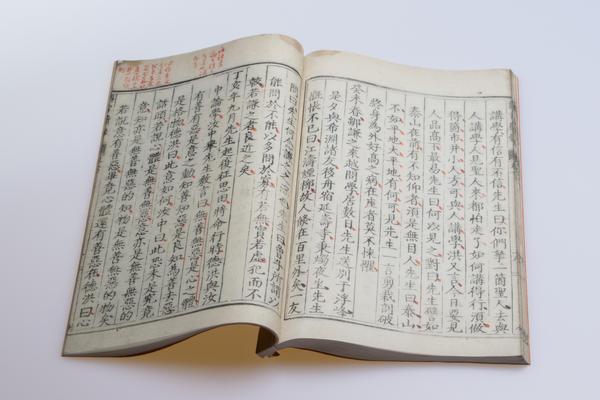 講學有信有不信先生曰你們拏一箇聖人去與
人講學人見聖人來都怕走了如何講得行須做
得箇市井小人方可與人講學洪又言今日要見
人品高下最易先生曰何以見之對曰先生譬如
泰山在前有不知仰者須是無目人先生曰泰山
不如平地大平地有何可見先生一言剪裁剖破
終年為外好高之病在座者莫不悚懼
癸未春鄒謙之來越問學居數日先生送別于浮峯
是夕與希淵諸友移舟宿延壽寺秉燭夜坐先生
慨悵不已曰江濤煙柳故人倏在百里外矣一友
問曰先生何念謙之之深也先生曰曾子所謂以
能問於不能以多問於寡有若無實若虛犯而不
較若謙之者良近之矣
丁亥年九月先生起復征思田將命行時德洪與汝
中論學汝中舉先生教言曰無善無惡是心之體
有善有惡是意之動知善知惡是良知為善去惡
是格物德洪曰此意如何汝中曰此恐未是究竟
話頭若說心體是無善無惡意亦是無善無惡的
意知亦是無善無惡的知物是無善無惡的物矣
若說意有善惡畢竟心體還有善惡在德洪曰心